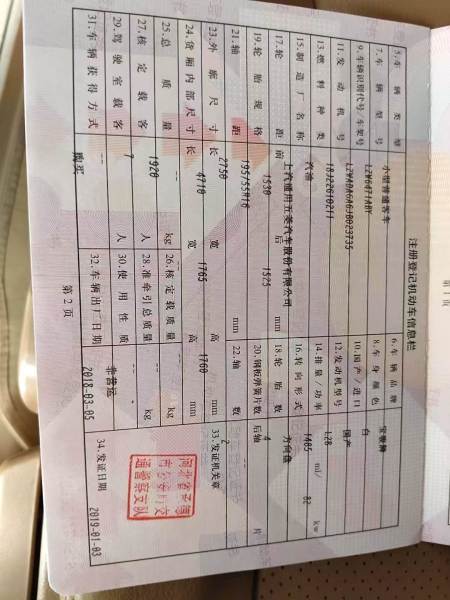 注册登记机动车信息栏
5.车辆类型 小型普通客车 6.车辆品牌 宝骏牌
7.车辆型号 LZW6471ABY 8.车身颜色 白
9.车辆识别代号/车架号 10.国产/进口 国产
11.发动机号 18J22610211 12.发动机型号 L2B
13.燃料种类 汽油 14.排量/功率 1485 ml/ 82 kw
15.制造厂名称 上汽通用五菱汽车股份有限公司 16.转向形式 方向盘
17.轮距 前 1530 后 1525 mm 18.轮胎数 4
19.轮胎规格 195/55R16 20.钢板弹簧片数 后轴 -- 片
21.轴距 2750 mm 22.轴数 2
23.外廓尺寸 长 4710 宽 1765 高 1760 mm 33.发证机关章
24.货厢内部尺寸 长 -- 宽 -- 高 -- mm
25.总质量 1920 kg 26.核定载质量 -- kg
27.核定载客 7 人 28.准牵引总质量 -- kg
29.驾驶室载客 -- 人 30.使用性质 非营运
31.车辆获得方式 购买 32.车辆出厂日期 2018-03-05 34.发证日期 2019-01-03
第 2 页
第 1 页